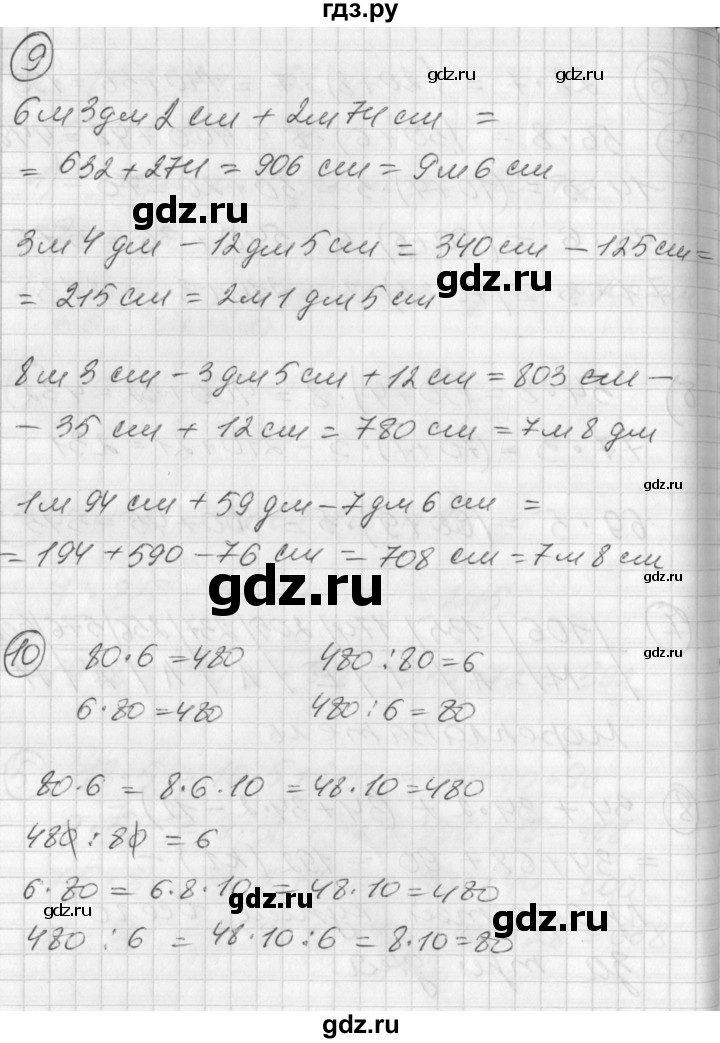 гдз.ру
9
gdz.ru gdz.ru
6м 3дм 2см + 2м 74см =
= 632 + 274 = 906 см = 9м 6см
gdz.ru
3м 4дм - 12дм 5см = 340см - 125см =
= 215см = 2м 1дм 5см
gdz.ru
8м 3см - 3дм 5см + 12см = 803 см -
- 35 см + 12см = 780 см = 7м 8дм
gdz.ru
1м 94см + 59дм - 7дм 6см =
= 194 + 590 - 76 см = 708 см = 7м 8см
gdz.ru
gdz.ru
10 80·6=480 480:80=6
gdz.ru
6·80=480 480:6=80
80·6 = 8·6·10 = 48·10=480
480:80 = 6
6·80 = 6·8·10 = 48·10=480
gdz.ru gdz.ru gdz.ru
480:6 = 48·10:6 = 8·10=80
gdz.ru
gdz.ru